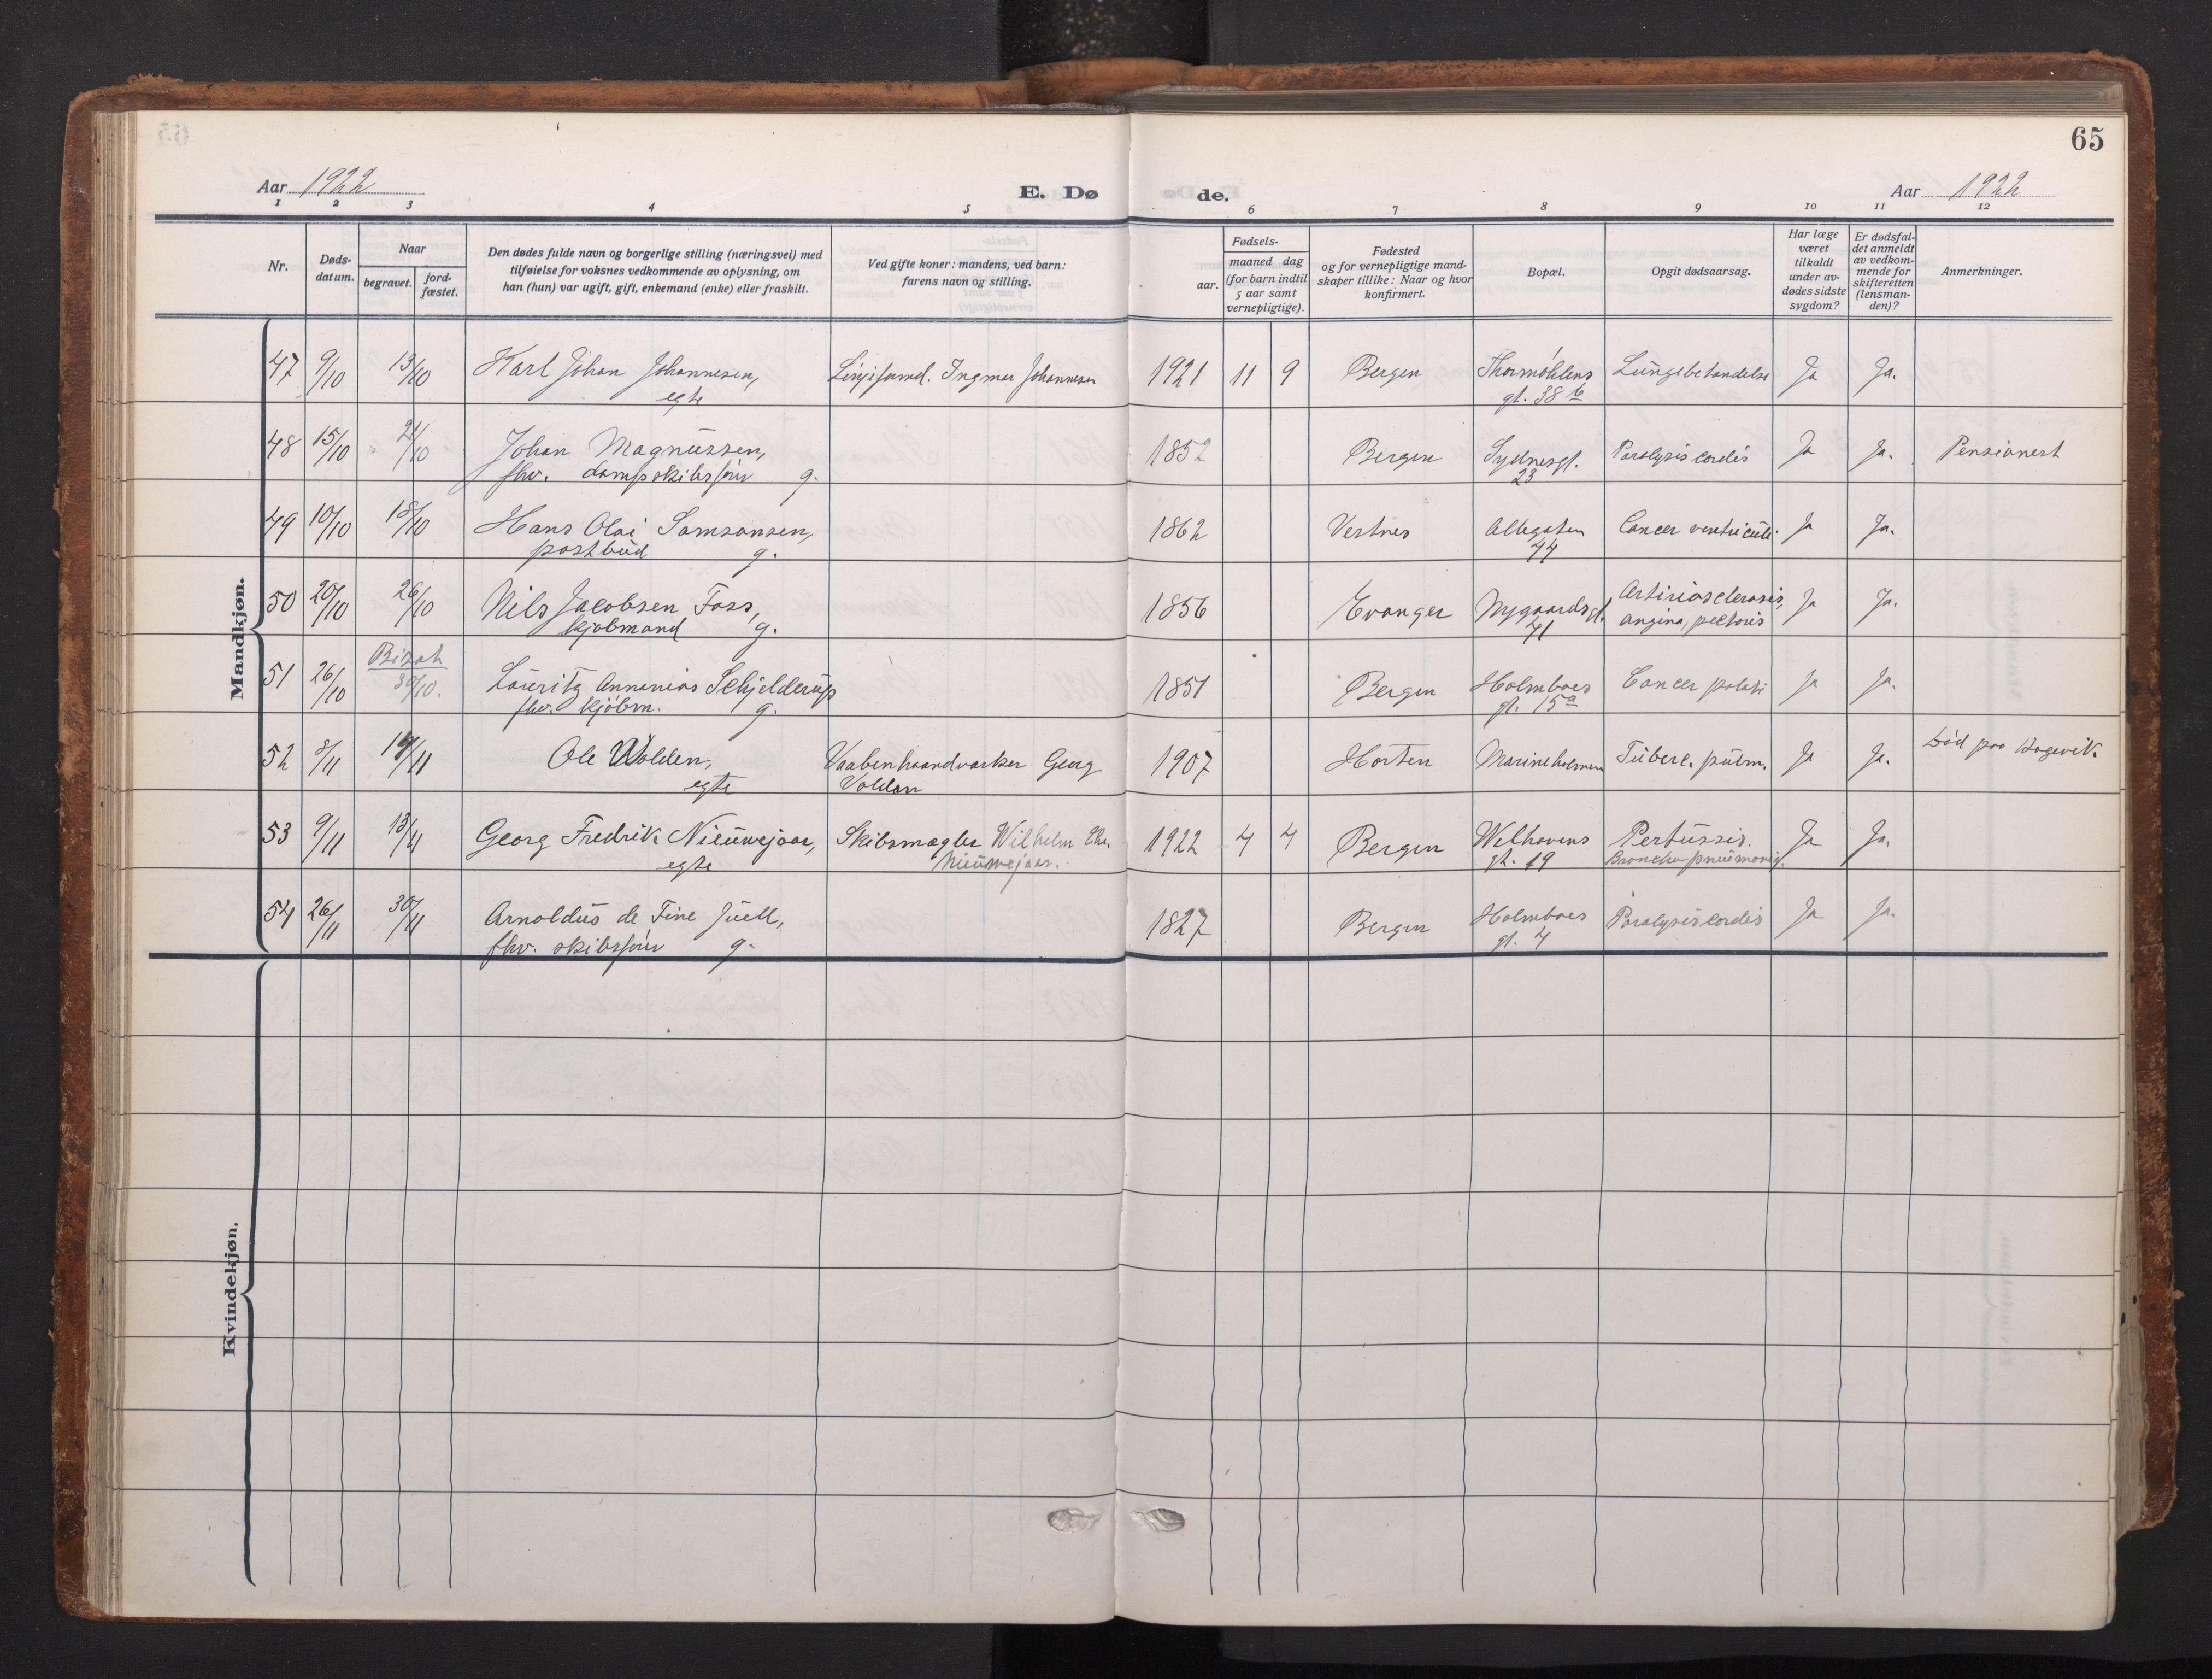 65
Aar 1922 E. Dø de. Aar 1922
1 2 3 4 5 6 7 8 9 10 11 12
Nr.
Døds-
datum.
Naar
begravet.
jord-
fæstet.
Den dødes fulde navn og borgerlige stilling (næringsvei) med
tilføielse for voksnes vedkommende av oplysning, om
han (hun) var ugift, gift, enkemand (enke) eller fraskilt.
Ved gifte koner: mandens, ved barn:
farens navn og stilling.
Fødsels-
aar.
maaned dag
(for barn indtil
5 aar samt
vernepligtige).
Fødested
og for vernepligtige mand-
skaper tillike: Naar og hvor
konfirmert.
Bopæl.
Opgit dødsaarsag.
Har læge
været
tilkaldt
under av-
dødes sidste
sygdom?
Er dødsfal-
det anmeldt
av vedkom-
mende for
skifteretten
(lensman-
den)?
Anmerkninger.
Mandkjøn.
47 9/10 13/10 Karl Johan Johannesen, Ingmar Johannesen 1921 11 9 Bergen Thormøhlens Lungebetændelse Ja Ja.
egte gt. 38 b
48 15/10 21/10 Johan Magnussen, 1852 Bergen Sydnesgt. Paralysis cordis Ja Ja. Pensionert
fhv. dampskibsfører g. 23
49 10/10 18/10 Hans Olai Samsonsen, 1862 Vestnes Allegaten Cancer ventriculi. Ja Ja.
postbud g. 44
50 20/10 26/10 Nils Jacobsen Foss, 1856 Evanger Nygaardsgt. Artiriosclerosis, Ja Ja.
kjøbmand g. 71 angina pectoris
51 26/10 30/10. Lauritz Annanias Schjelderup 1851 Bergen Holmboes Cancer palati Ja Ja.
fhv. kjøbm. g. gt. 15 a
52 8/11 14/11 Ole Volden, Vaabenhaandverker Georg 1907 Horten Marineholmen Tuberc. pulm. Ja Ja. Død paa Hagevik.
egte Volden
53 9/11 13/11 Georg Fredrik Nieuwejaar, Skibsmægler Wilhelm Chr. 1922 4 4 Bergen Welhavens Pertussis. Ja Ja.
egte Nieuwejaar. gt. 19 Broncho pneumoni.
54 26/11 30/11 Arnoldus de Fine Juell, 1827 Bergen Holmboes Paralysis cordis Ja Ja.
fhv. skibsfører g. gt. 4
Kvindekjøn.